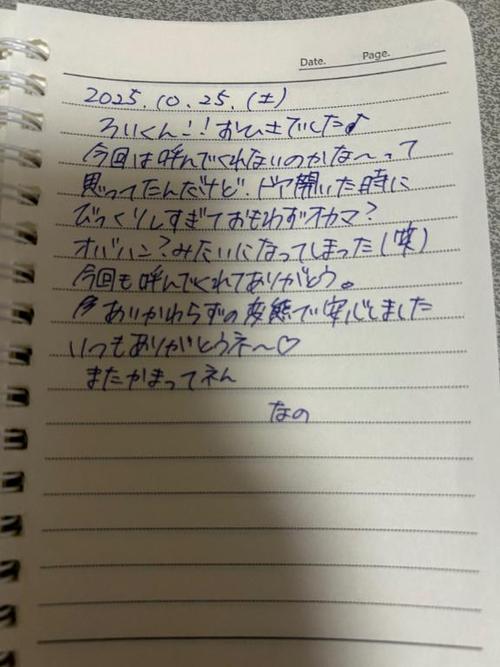 Date. Page.
2025.10.25.(土)
ろいくん!! おひさでした♪
今回は呼んでくれないのかな〜って
思ってたんだけど、ドア開いた時に
びっくりしすぎておもわずオカマ?
オバハン?みたいになってしまった(笑)
今回も呼んでくれてありがとう。
あいかわらずの変態で安心しました
いつもありがとうネ〜♡
またかまってネん
なの